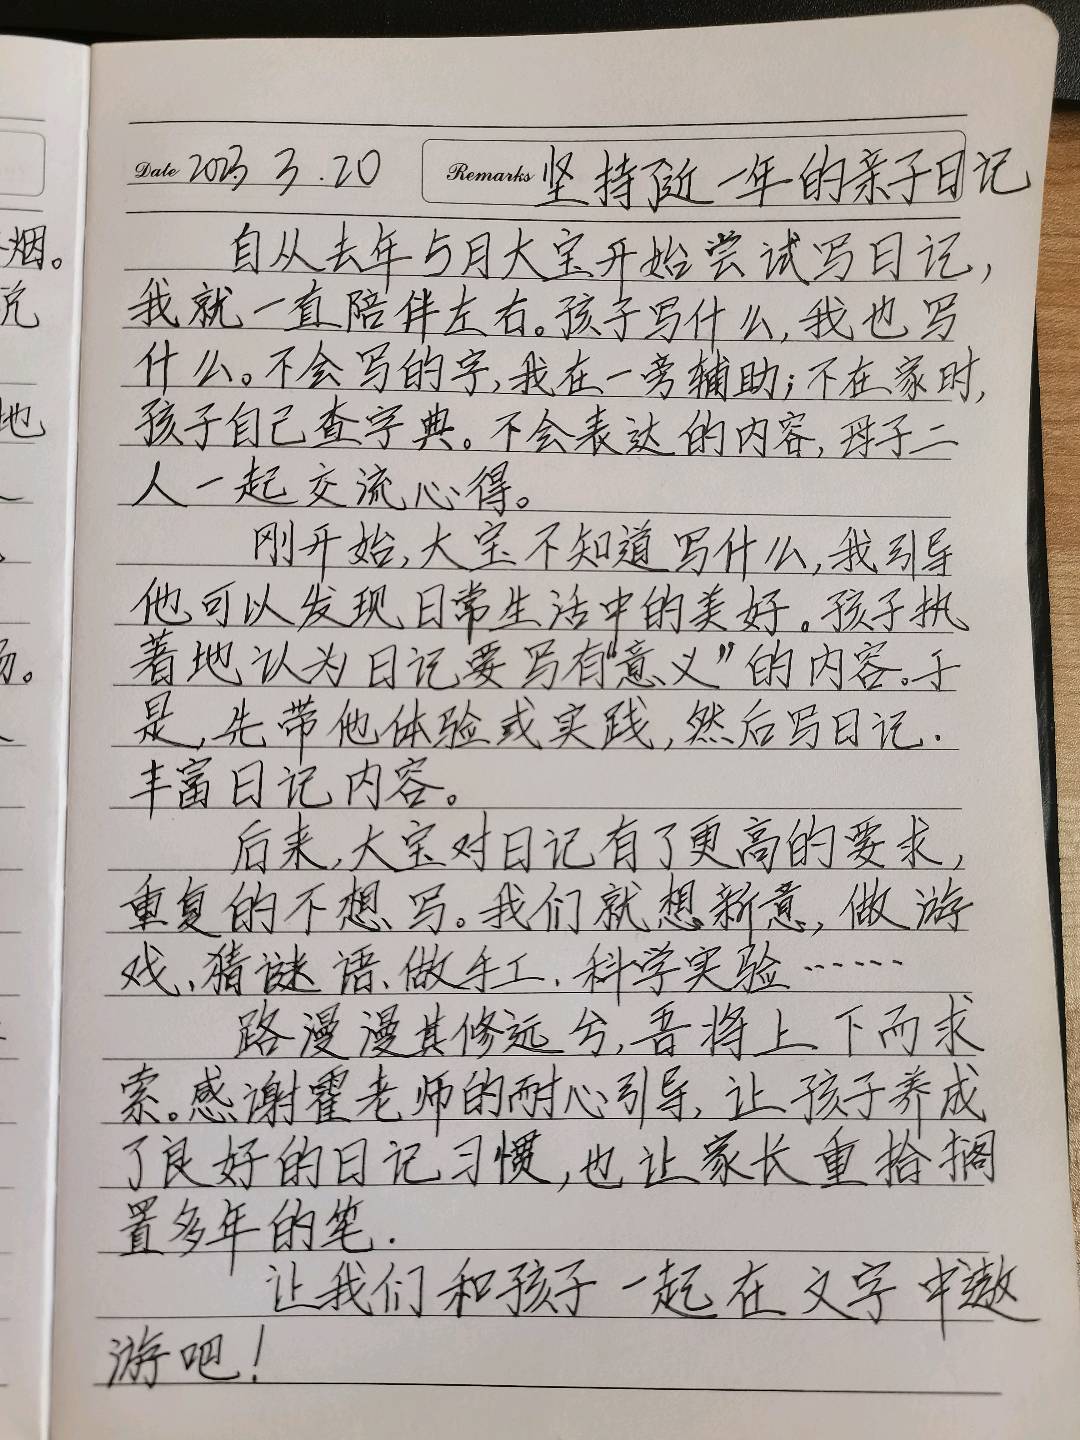 Date 2023 3.20 Remarks 坚持了近一年的亲子日记
自从去年5月大宝开始尝试写日记，
我就一直陪伴左右。孩子写什么，我也写
什么。不会写的字，我在一旁辅助；不在家时，
孩子自己查字典。不会表达的内容，母子二
人一起交流心得。
刚开始，大宝不知道写什么，我引导
他可以发现日常生活中的美好。孩子执
著地认为日记要写有“意义”的内容。于
是，先带他体验或实践，然后写日记.
丰富日记内容。
后来，大宝对日记有了更高的要求，
重复的不想写。我们就想新意，做游
戏、猜谜语、做手工、科学实验……
路漫漫其修远兮，吾将上下而求
索。感谢霍老师的耐心引导，让孩子养成
了良好的日记习惯，也让家长重拾搁
置多年的笔.
让我们和孩子一起在文字中遨
游吧！
烟。
说
地
场。